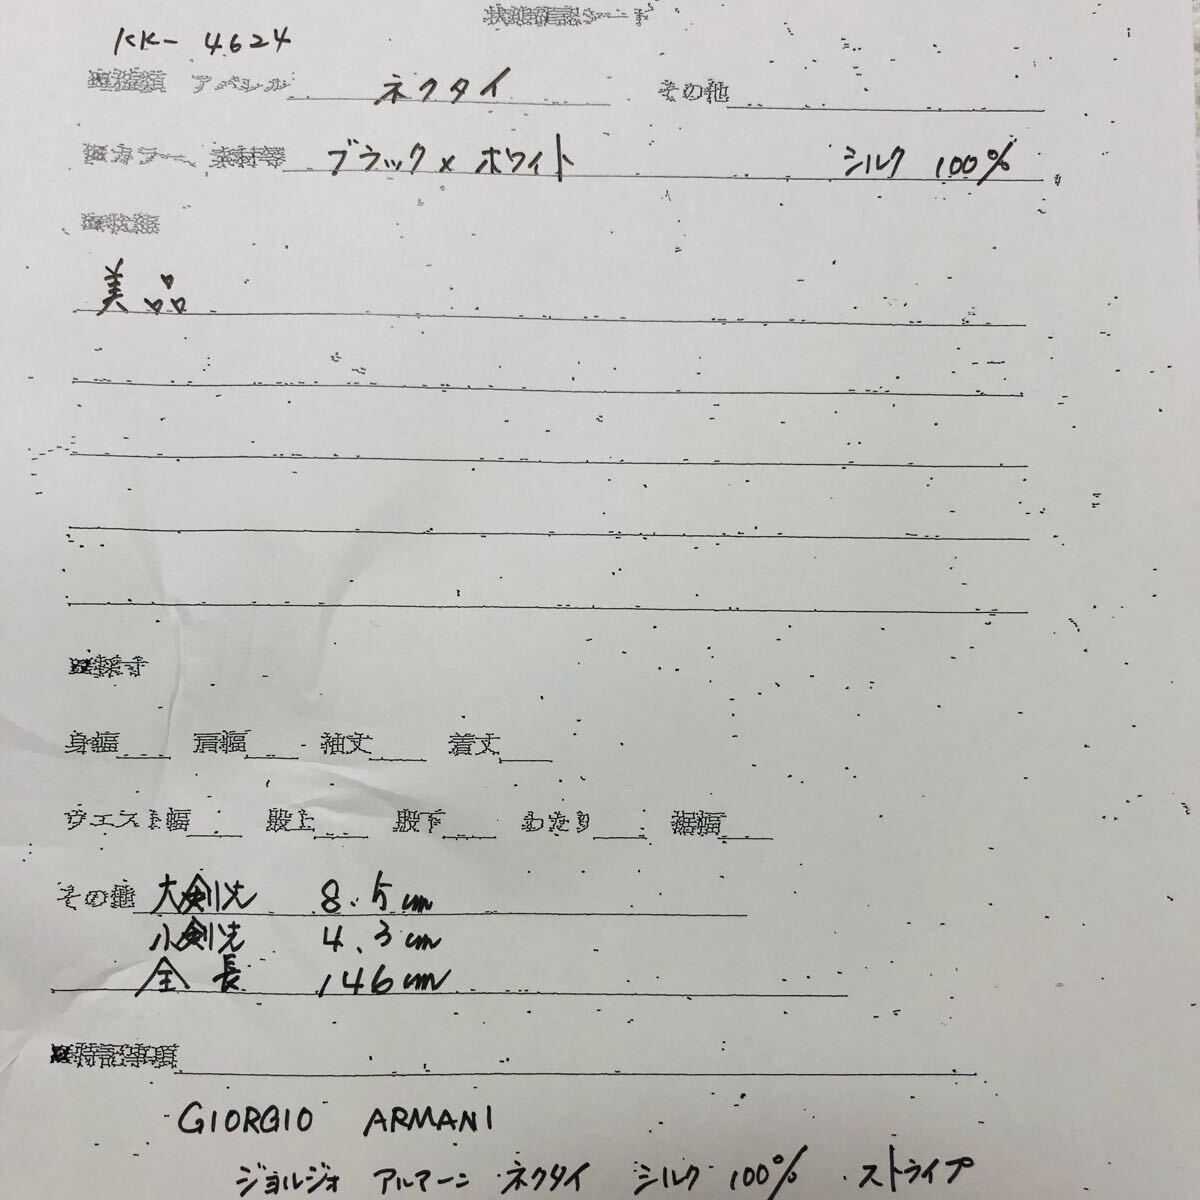 状態確認シート
KK- 4624
■種類 アパレル ネクタイ その他
■カラー、素材等 ブラック×ホワイト シルク 100%
■状態
美品
■採寸
身幅 肩幅 袖丈 着丈
ウエスト幅 股上 股下 わたり 裾幅
その他 大剣先 8.5cm
小剣先 4.3cm
全長 146cm
■特記事項
GIORGIO ARMANI
ジョルジォ アルマーニ ・ネクタイ シルク 100% ・ストライプ